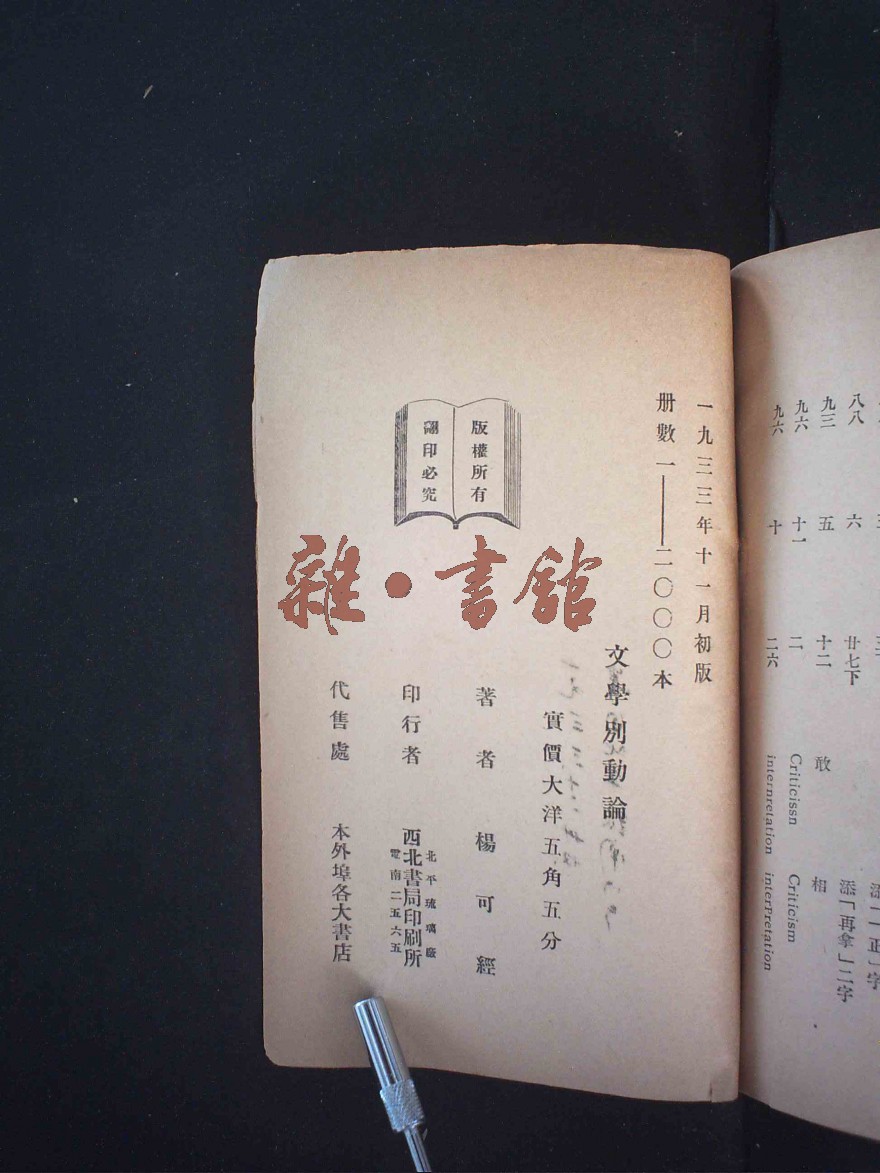 九三 五 十二 敢 相
九六 十一 二 Criticissn Criticism
九六 十 二六 internretation interPretation
八八 六 廿七下 添「再拿」二字
一九三三年十一月初版
册數一——二〇〇〇本
文學別動論
實價大洋五角五分
版權所有
翻印必究
著者 楊可經
印行者 西北書局印刷所
北平琉璃廠
電南二五六五
代售處 本外埠各大書店
雜·書館